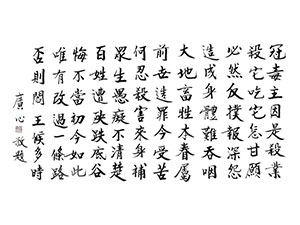 冠毒主因是殺業
殺它吃它怎甘願
必然反撲報深怨
造成身體難吞咽
大地畜牲本眷屬
前世造罪今受苦
何忍殺害來身補
眾生愚癡不清楚
百姓遭殃跌底谷
悔不當初今如此
唯有改過一條路
否則閻王候多時
廣心敬題